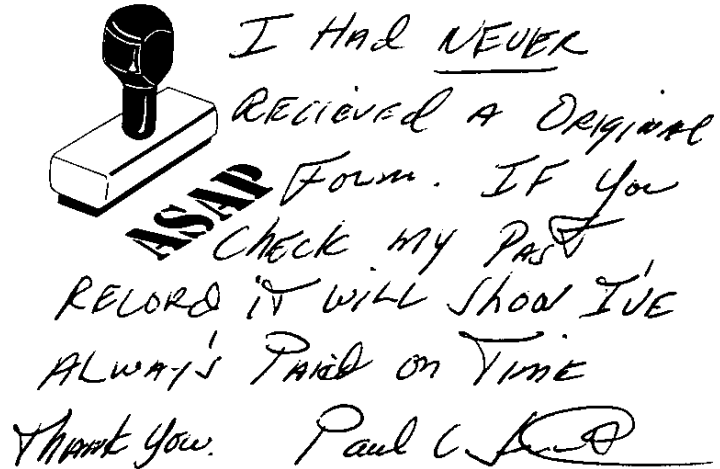 I Had NEVER
RECIEVED A ORIGINAL
FORM. IF You
ASAP
CHECK MY PAST
RECORD IT WILL SHOW I'VE
ALWAY'S PAID ON TIME
Thank You. Paul C